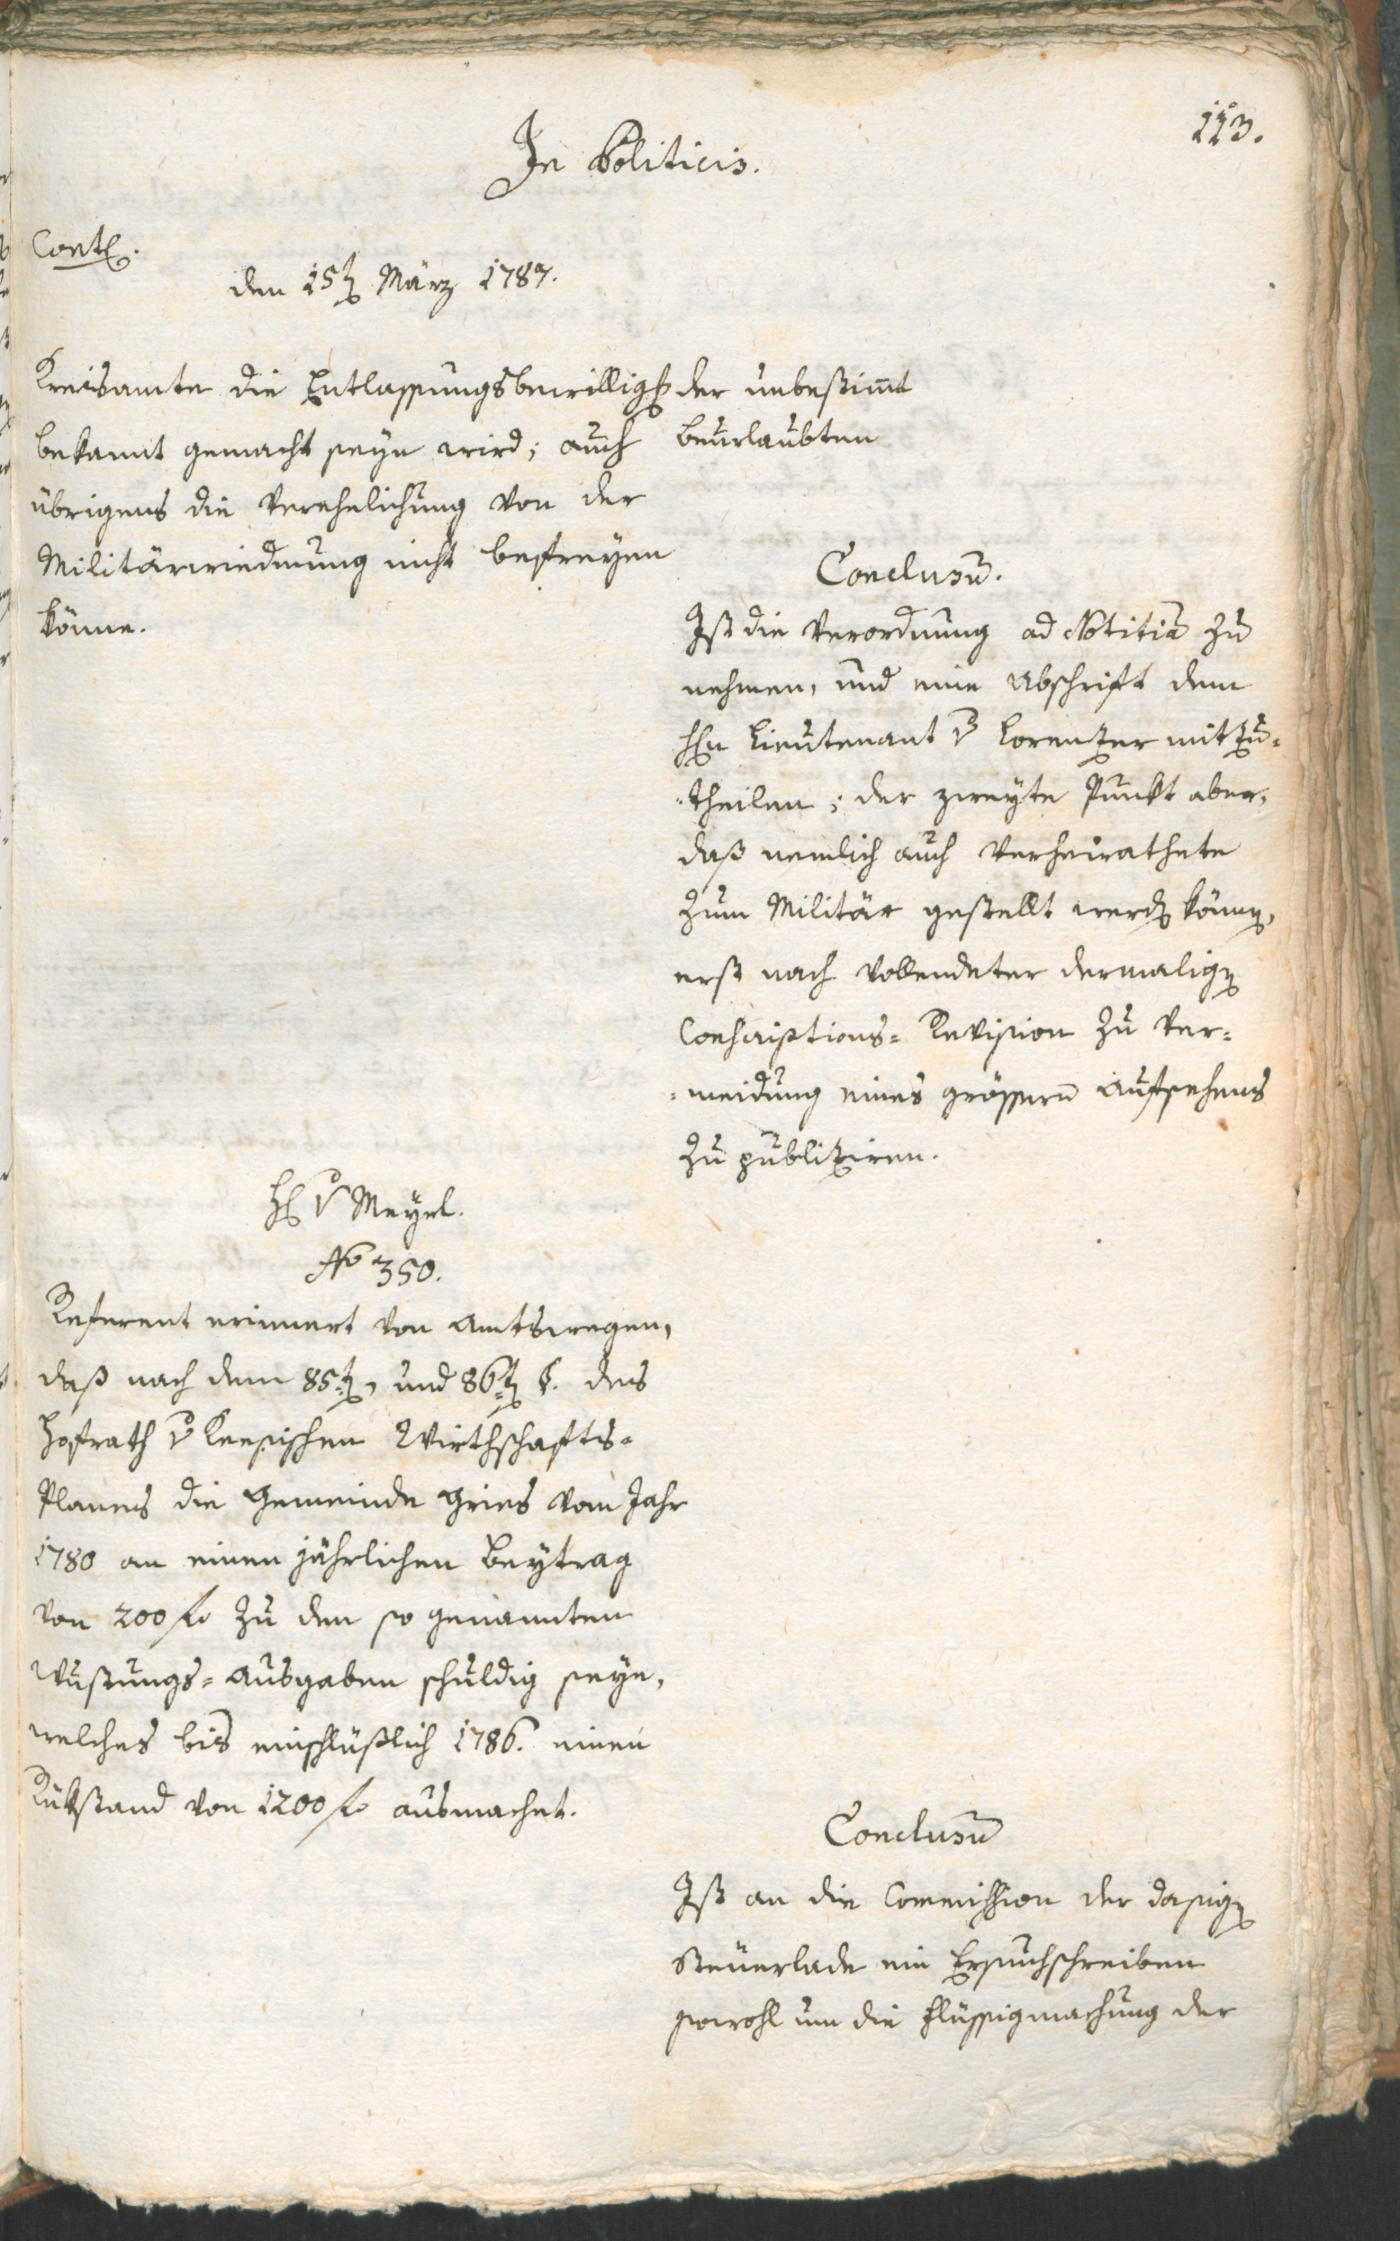 113.
In Politicis.
Cont.
den 15t März 1787.
Kreisamte die Entlassungsbewillig der unbestimt
bekannt gemacht seyn wird; auch beurlaubten
übrigens die Verehelichung von der
Militärwiedmung nicht befreyen
könne.
Conclusū.
Ist die Verordnung ad Notitiā zu
nehmen, und eine Abschrift dem
Hn Lieutenant v Lorenzer mitzu=
=theilen; der zweyte Punkt aber,
daß nemlich auch Verheirathete
zum Militär gestellt werd könn,
erst nach vollendeter dermalig
Conscriptions= Revision zu Ver=
=meidung eines grössern Aufsehens
zu publiziren.
H v Meyrl.
No 350.
Referent erinnert von Amtswegen,
daß nach dem 85t, und 86t §. des
Hofrath v Keesischen Wirthschafts=
Planes die Gemeinde Gries vom Jahr
1780 an einen jährlichen Beytrag
von 200 fl zu den so genannten
Wustungs= Ausgaben schuldig seye,
welches bis einschlüßlich 1786. einen
Rükstand von 1200 fl ausmachet.
Conclusū
Ist an die Commission der dasig
Steuerlade ein Ersuchschreiben
sowohl um die Flüssigmachung der